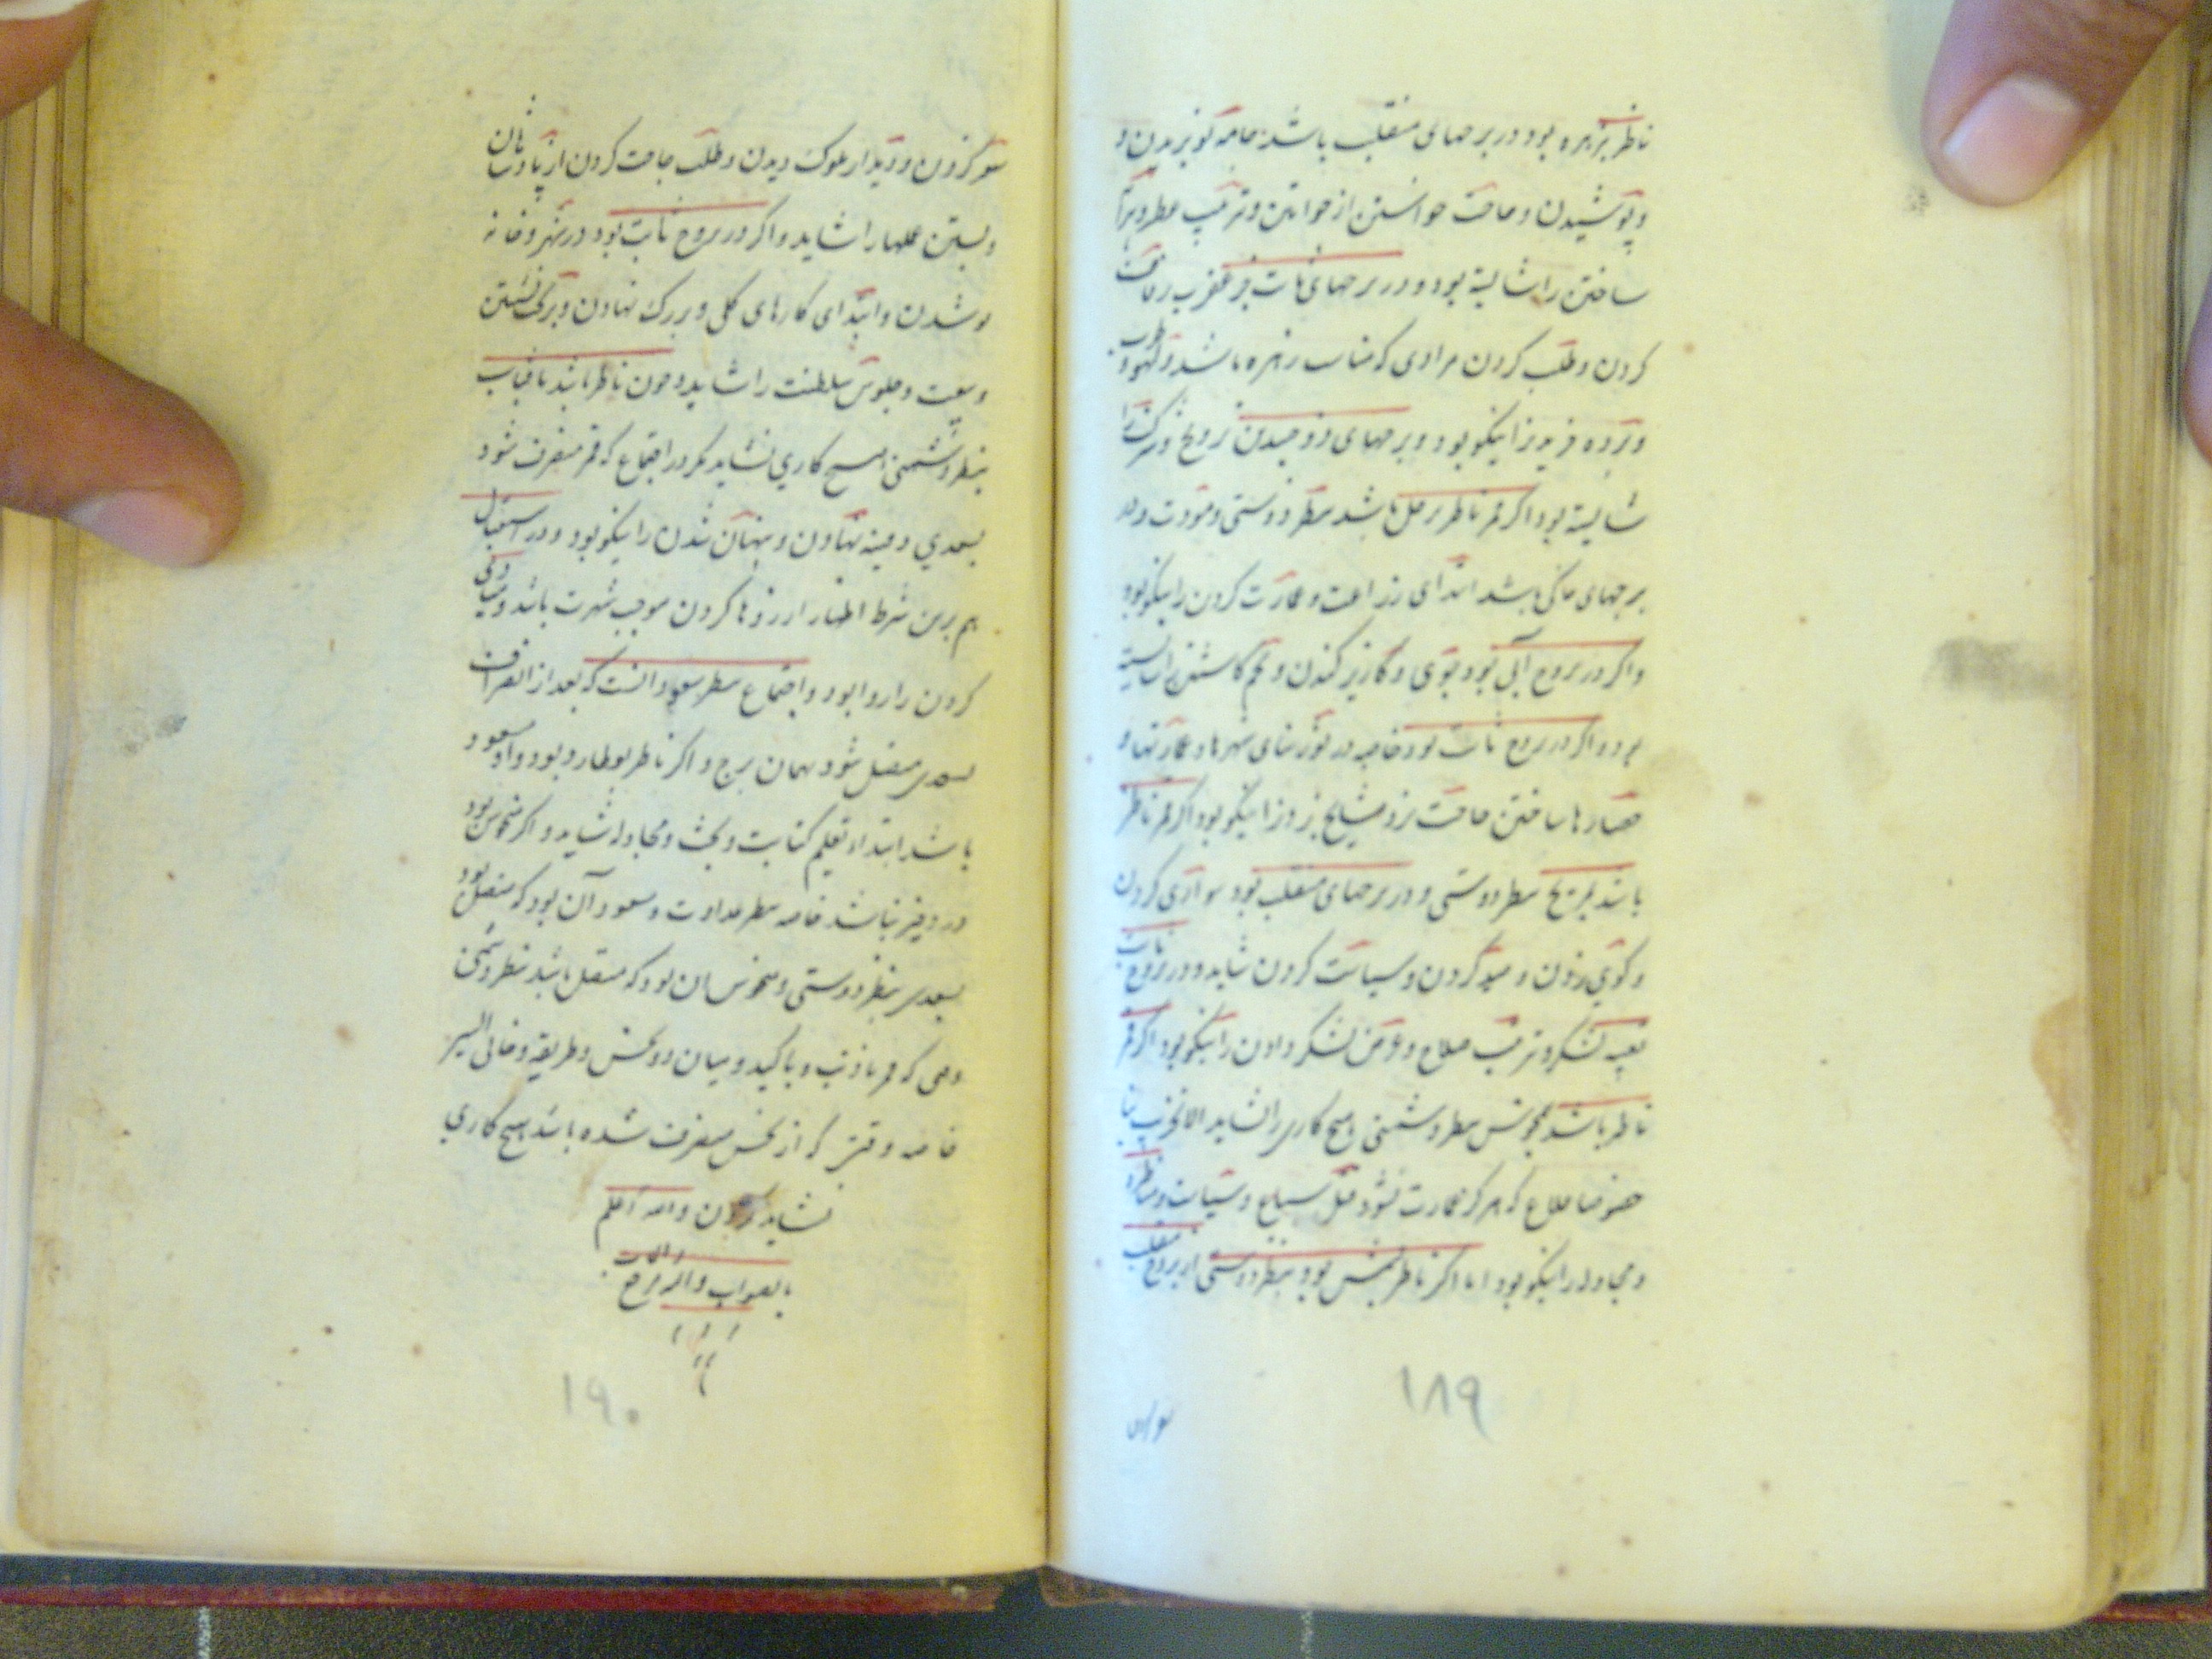 ناظر بزهره بود در برجهای منقلب باشد جامه نو بریدن و
و پوشیدن و حاجت خواستن از خواتین و ترتیب عطر و بزم
ساختن را شایسته بود و در برجهای ثابت جز عقرب زفاف
کردن و طلب کردن مرادی که مناسب زهره باشد و لهو و طرب
و برده خریدن را نیکو بود و برجهای ذوجسدین تزویج و شرکت را
شایسته بود اگر قمر ناظر بزحل باشد بنظر دوستی و مودت و در
برجهای خاکی باشد ابتدای زراعت و عمارت کردن را نیکو بود
و اگر در بروج آبی بود جوی و کاریز کندن و تخم کاشتن را شایسته
بود و اگر در بروج ثابت بود خاصه در ثور بنای شهرها و عمارتها و
حصارها ساختن حاجت نزد مشایخ بردن را نیکو بود اگر قمر ناظر
باشد بمریخ بنظر دوستی و در برجهای منقلب بود سواری کردن
و گوی زدن و صید کردن و سیاست کردن شاید و در بروج ثابت
تعبیه لشکر و ترتیب سلاح و عرض لشکر دادن را نیکو بود اگر قمر
ناظر باشد بنحوس بنظر دشمنی هیچ کاری را نشاید الا تخریب بنا
خصوصا قلاع که هرگز عمارت نشود قتل سباع و سیاست و مناظره
و مجادله را نیکو بود اما اگر ناظر بشمس بود بنظر دوستی از بروج منقلب
سواری
۱۸۹
سفر کردن و دیدار ملوک دیدن و طلب حاجت کردن از پادشاهان
و بستن علمها را شاید و اگر در بروج ثابت بود در شهر و خانه
نو شدن و ابتدای کارهای کلی و بزرگ نهادن و بر تخت نشستن
و بیعت و جلوس سلطنت را شاید و چون ناظر باشد بآفتاب
بنظر دشمنی هیچ کاری نشاید مگر در اجتماع که قمر منصرف شود
بسعدی دفینه نهادن و پنهان شدن را نیکو بود و در استقبال
هم برین شرط اظهار رازها کردن موجب شهرت باشد و منادی
کردن را روا بود و اجتماع بنظر سعود آنست که بعد از انصراف
بسعدی متصل شود بهمان برج و اگر ناظر بعطارد بود و او مسعود
باشد ابتداء تعلیم کتابت و بحث و مجادله شاید و اگر منحوس بود
در دفتر نباشد خاصه بنظر عداوت و مسعود آن بود که متصل بود
بسعدی بنظر دوستی و منحوس آن بود که متصل باشد بنظر دشمنی
و می که قمر با ذنب و با کید و میان دو نحس و طریقه و خالی السیر
خاصه وقتی که از نحس منصرف شده باشد هیچ کاری
نشاید کردن والله اعلم
بالصواب والیه المرجع والمآب
۱۹۰